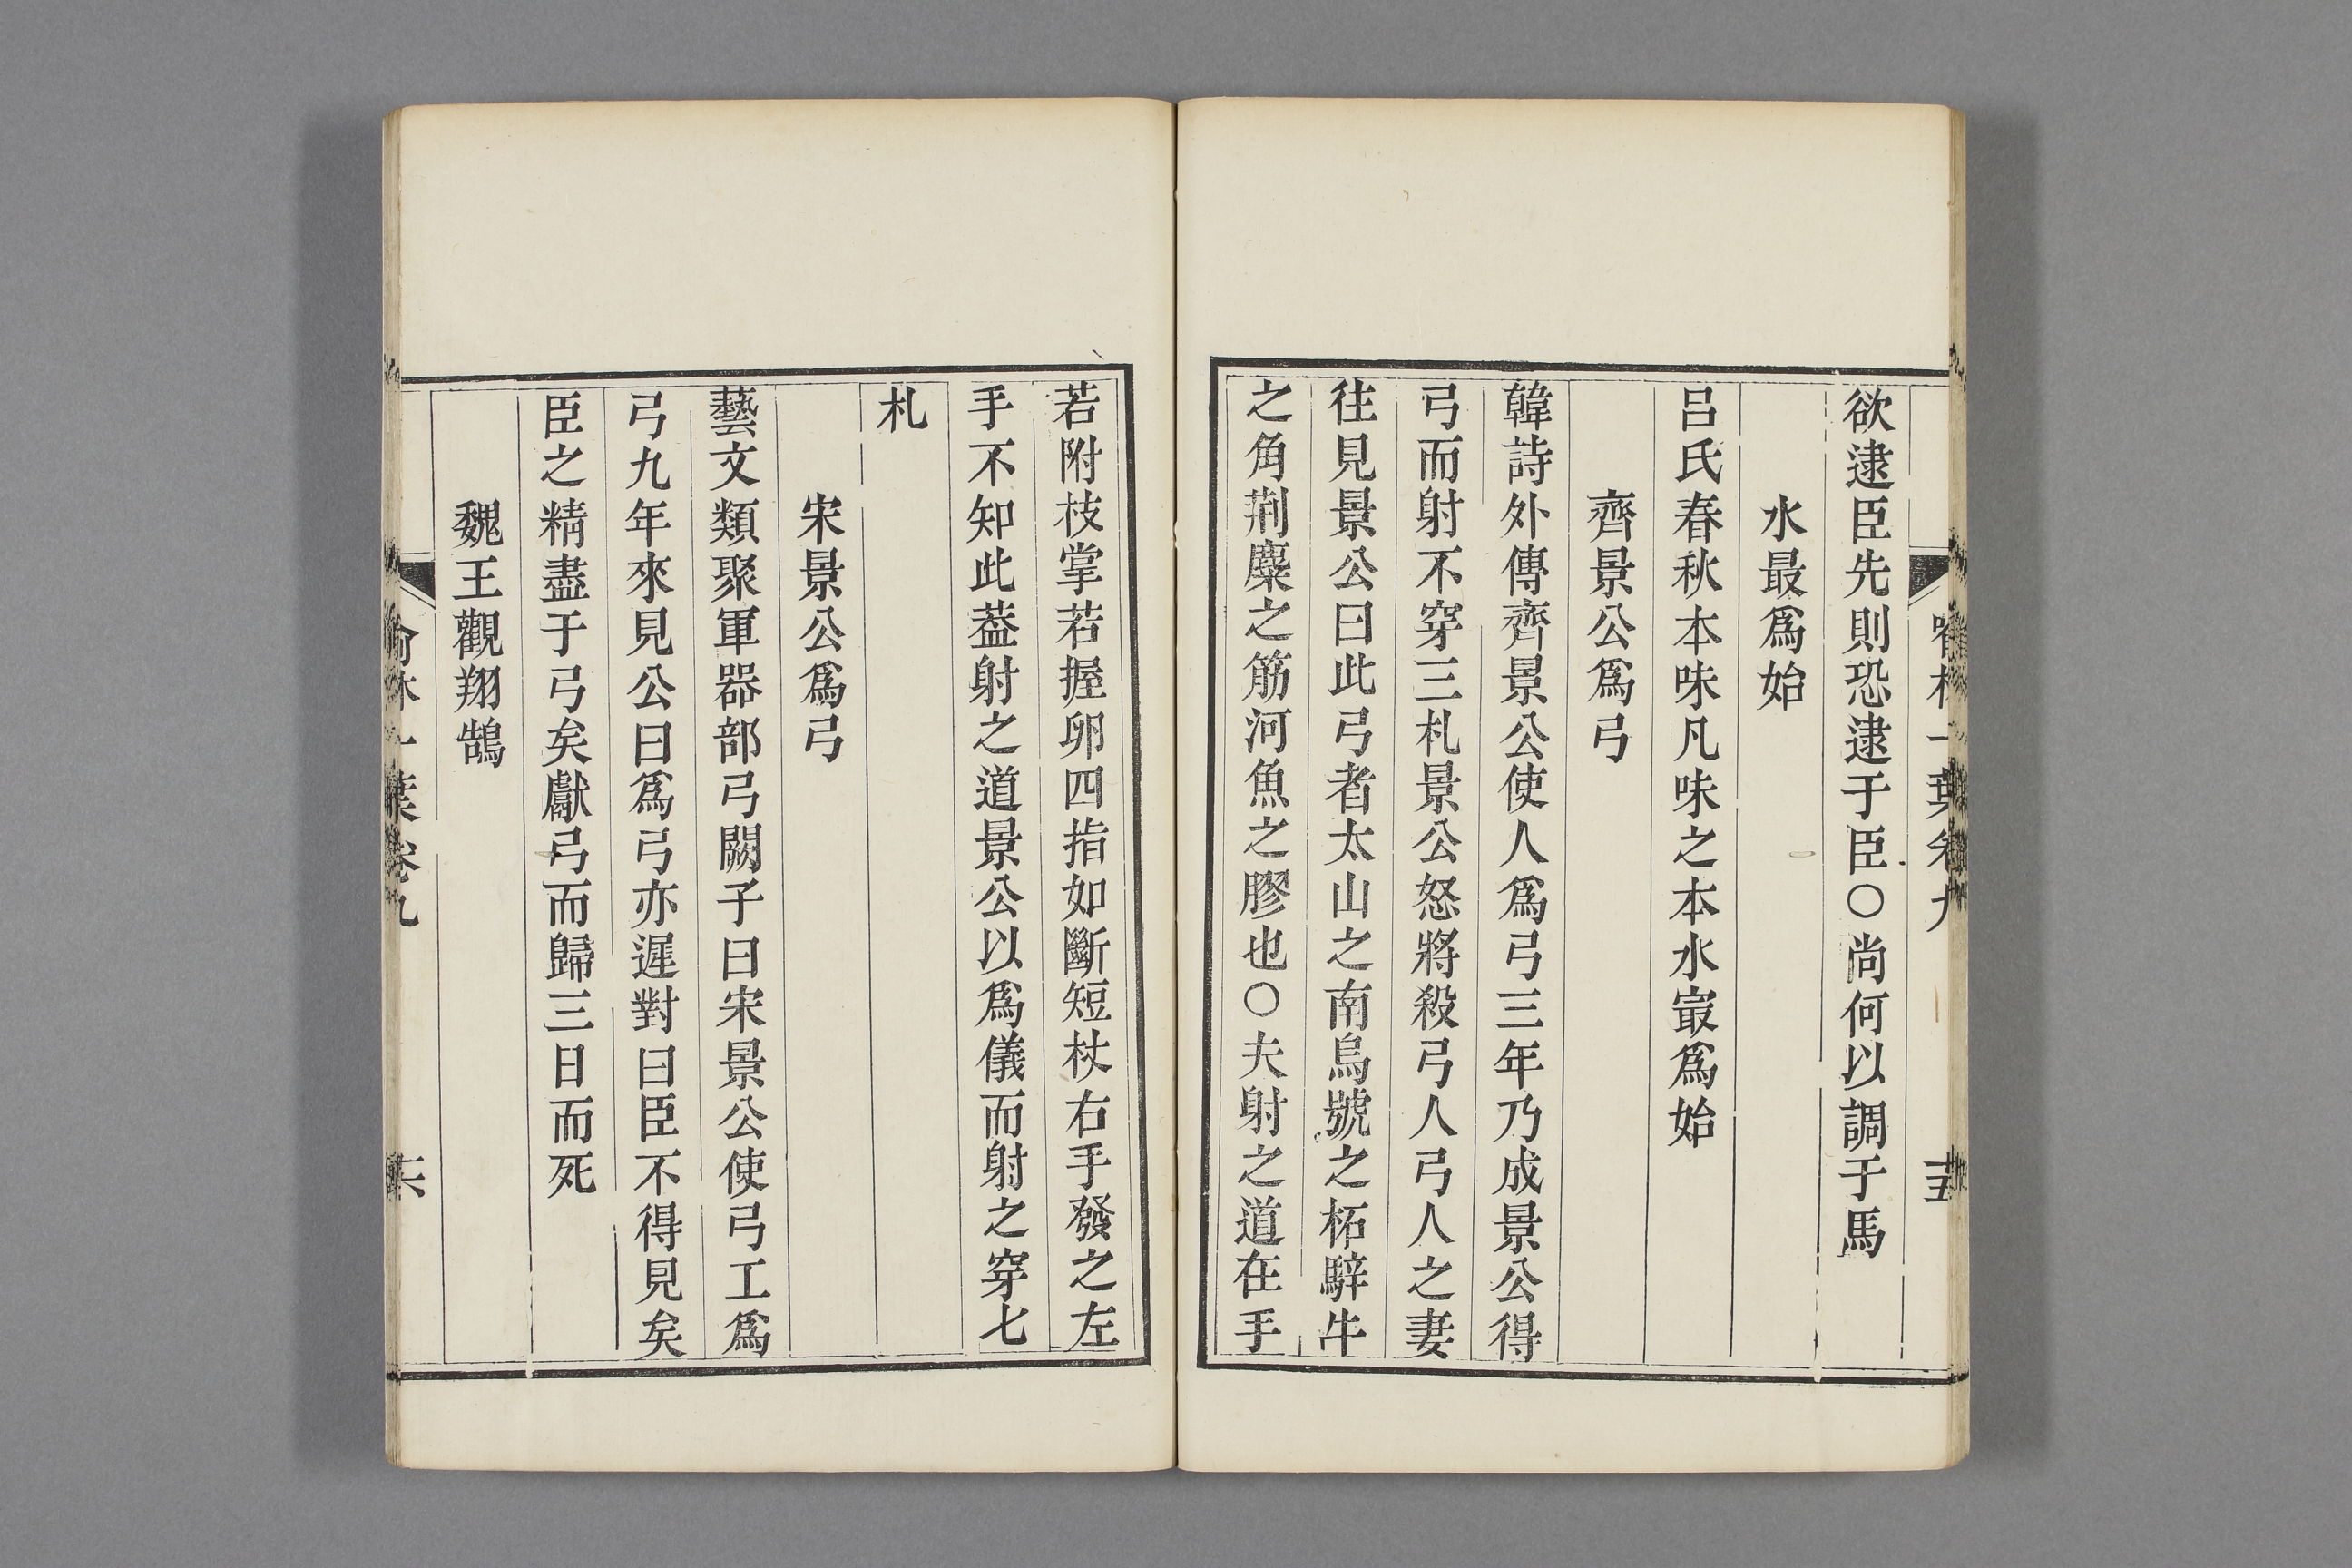 欲逮臣先則恐逮于臣〇尚何以調于馬
水最爲始
呂氏春秋本味凡味之本水㝡爲始
齊景公爲弓
韓詩外傳齊景公使人爲弓三年乃成景公得
弓而射不穿三札景公怒將殺弓人弓人之妻
往見景公曰此弓者太山之南烏號之柘騂牛
之角荆麋之筋河魚之膠也〇夫射之道在手
若附枝掌若握卵四指如斷短杖右手發之左
手不知此葢射之道景公以爲儀而射之穿七
札
宋景公爲弓
藝文類聚軍器部弓闕子曰宋景公使弓工爲
弓九年來見公曰爲弓亦遲對曰臣不得見矣
臣之精盡于弓矣獻弓而歸三日而死
魏王觀翔鵠